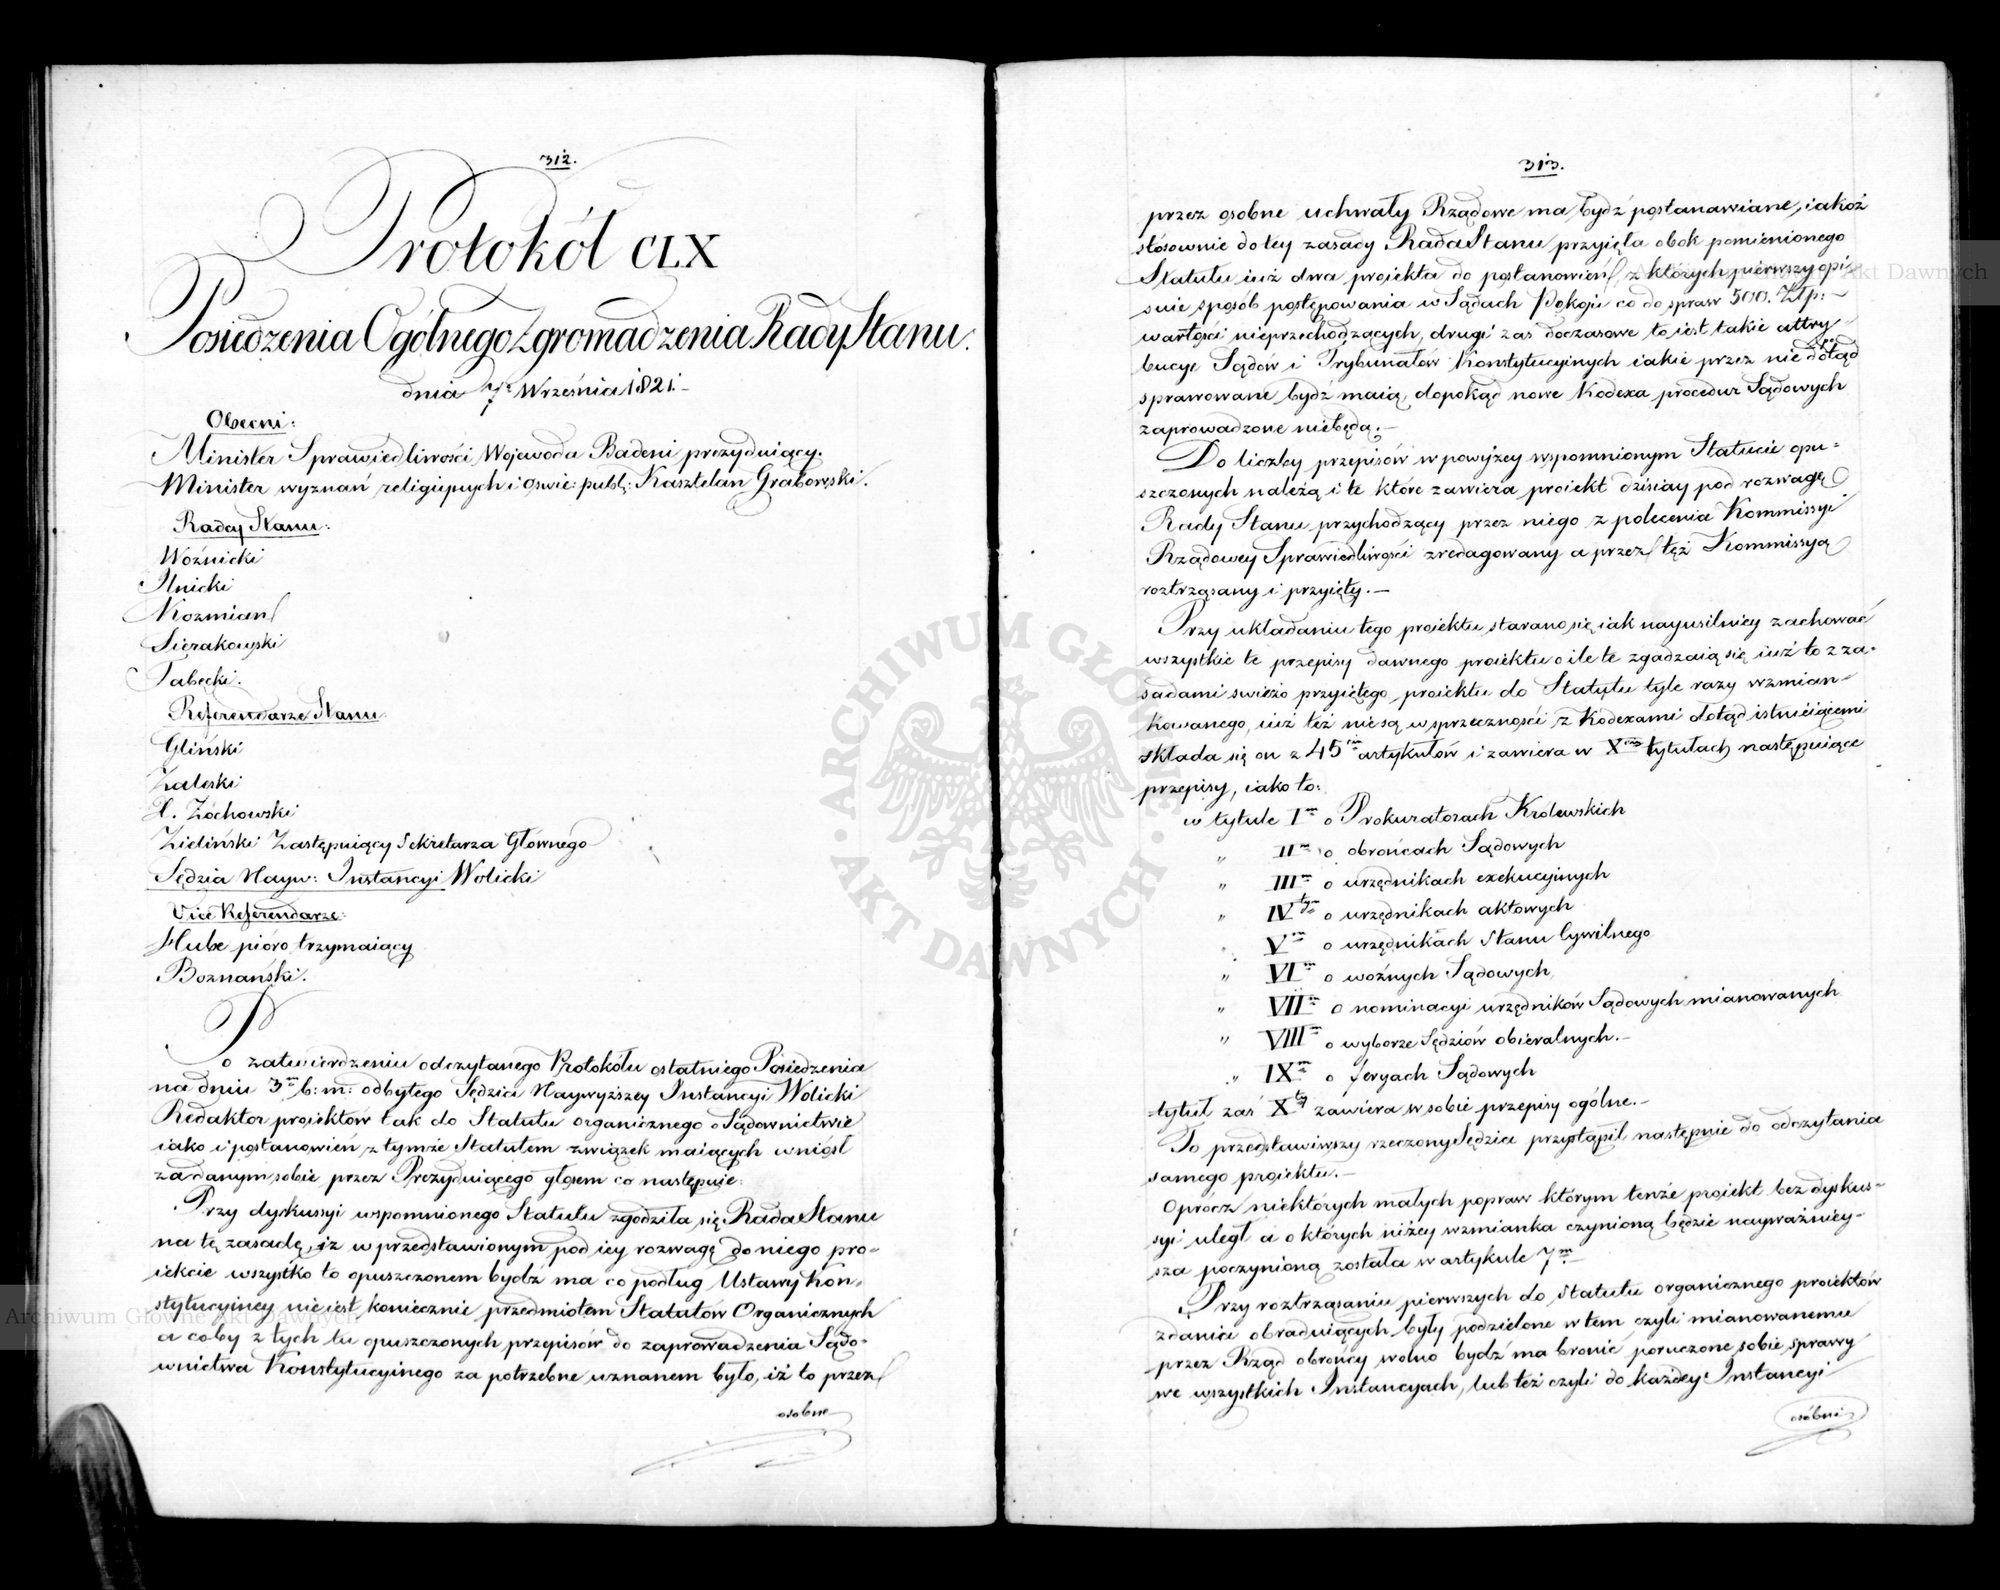 312.
Protokół CLX
Posiedzenia Ogólnego Zgromadzenia Rady Stanu.
dnia 7. Września 1821.
Obecni:
Minister Sprawiedliwości Wojewoda Badeni prezyduiący.
Minister wyznań religiynych i oświe: publ: Kasztelan Grabowski.
Radcy Stanu:
Woźnicki
Ilnicki
Kozmian
Sierakowski
Tabęcki.
Referendarze Stanu
Gliński
Zaleski
X. Żochowski
Zieliński Zastępuiący Sekretarza Głównego
Sędzia Nayw: Instancyi Wolicki
Vice Referendarze:
Hube pióro trzymaiący
Boznański.
Po zatwierdzeniu odczytanego Protokółu ostatniego Posiedzenia
na dniu 3m b: m: odbytego Sędzia Naywyższey Instancyi Wolicki
Redaktor proiektów tak do Statutu organicznego o Sądownictwie
iako i postanowień z tymże Statutem związek maiących wniósł
za danym sobie przez Prezyduiącego głosem co następuie:
Przy dyskussyi wspomnionego Statutu zgodziła się Rada Stanu
na tę zasadę, iż w przedstawionym pod iey rozwagę do niego pro-
iekcie wszystko to opuszczonem bydź ma co podług Ustawy Kon-
stytucyiney nie iest koniecznie przedmiotem Statutów Organicznych
a coby z tych tu opuszczonych przepisów do zaprowadzenia Sądo-
wnictwa Konstytucyinego za potrzebne uznanem było, iż to przez
osobne
313.
przez osobne uchwały Rządowe ma bydź postanawiane, iakoż
stósownie do tey zasady Rada Stanu przyięła obok pomienionego
Statutu iuż dwa proiekta do postanowień z których pierwszy opi-
suie sposób postępowania w Sądach Pokoju co do spraw 500. Złp:
wartości nieprzechodzących, drugi zaś doczasowe to iest takie attry-
bucye Sądów i Trybunałów Konstytucyinych iakie przez nie dotąd
sprawowane bydź maią, dopokąd nowe Kodexa procedur Sądowych
zaprowadzone niebędą.
Do liczby przepisów w powyżey wspomnionym Statucie opu-
szczonych należą i te które zawiera proiekt dzisiay pod rozwagę
Rady Stanu przychodzący przez niego z polecenia Kommissyi
Rządowey Sprawiedliwości zredagowany a przez też Kommissyą
roztrząsany i przyięty.
Przy układaniu tego proiektu starano się iak nayusilniey zachować
wszystkie te przepisy dawnego proiektu o ile te zgadzaią się iuż to z za-
sadami swieżo przyiętego proiektu do Statutu tyle razy wzmian-
kowanego, iuż też nie są w sprzeczności z Kodexami dotąd istnieiącemi
składa się on z 45 artykułów i zawiera w X tytułach następuiące
przepisy, iako to:
w tytule Im o Prokuratorach Królewskich
" IIm o obrońcach Sądowych
" IIIm o urzędnikach exekucyinych
" IVtym o urzędnikach aktowych
" Vm o urzędnikach Stanu Cywilnego
" VIm o woźnych Sądowych
" VIIm o nominacyi urzędników Sądowych mianowanych
" VIIIm o wyborze Sędziów obieralnych.
" IXm o feryach Sądowych
tytuł zaś Xty zawiera w sobie przepisy ogólne.
To przedstawiwszy rzeczony Sędzia przystąpił następnie do odczytania
samego proiektu.
Oprócz niektórych małych popraw którym tenże proiekt bez dyskus-
syi uległ a o których niżey wzmianka czynioną będzie nayważniey-
sza poczynioną została w artykule 7m
Przy roztrząsaniu pierwszych do Statutu organicznego proiektów
zdania obraduiących były podzielone w tem czyli mianowanemu
przez Rząd obrońcy wolno bydź ma bronić poruczone sobie sprawy
we wszystkich Instancyach, lub też czyli do każdey Instancyi
osóbni
Archiwum Główne Akt Dawnych
Archiwum Główne Akt Dawnych
ARCHIWUM GŁÓWNE · AKT DAWNYCH ·